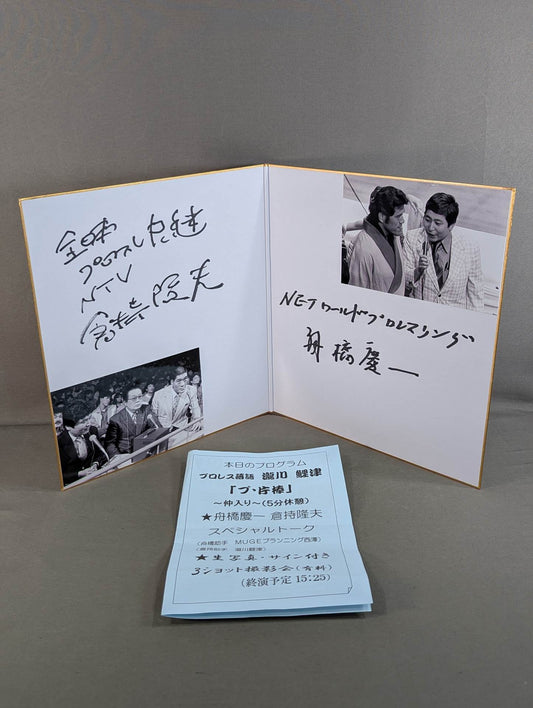 全日本
プロレス中継
NTV
倉持隆夫
NETワールドプロレスリング
舟橋慶一
本日のプログラム
プロレス落語 瀧川 鯉津
「ブ・片棒」
～仲入り～(5分休憩)
★舟橋慶一 倉持隆夫
スペシャルトーク
(舟橋助手 MUGEプランニング西澤)
(倉持助手 瀧川鯉津)
★生写真・サイン付き
3ショット撮影会(有料)
(終演予定 15:25)